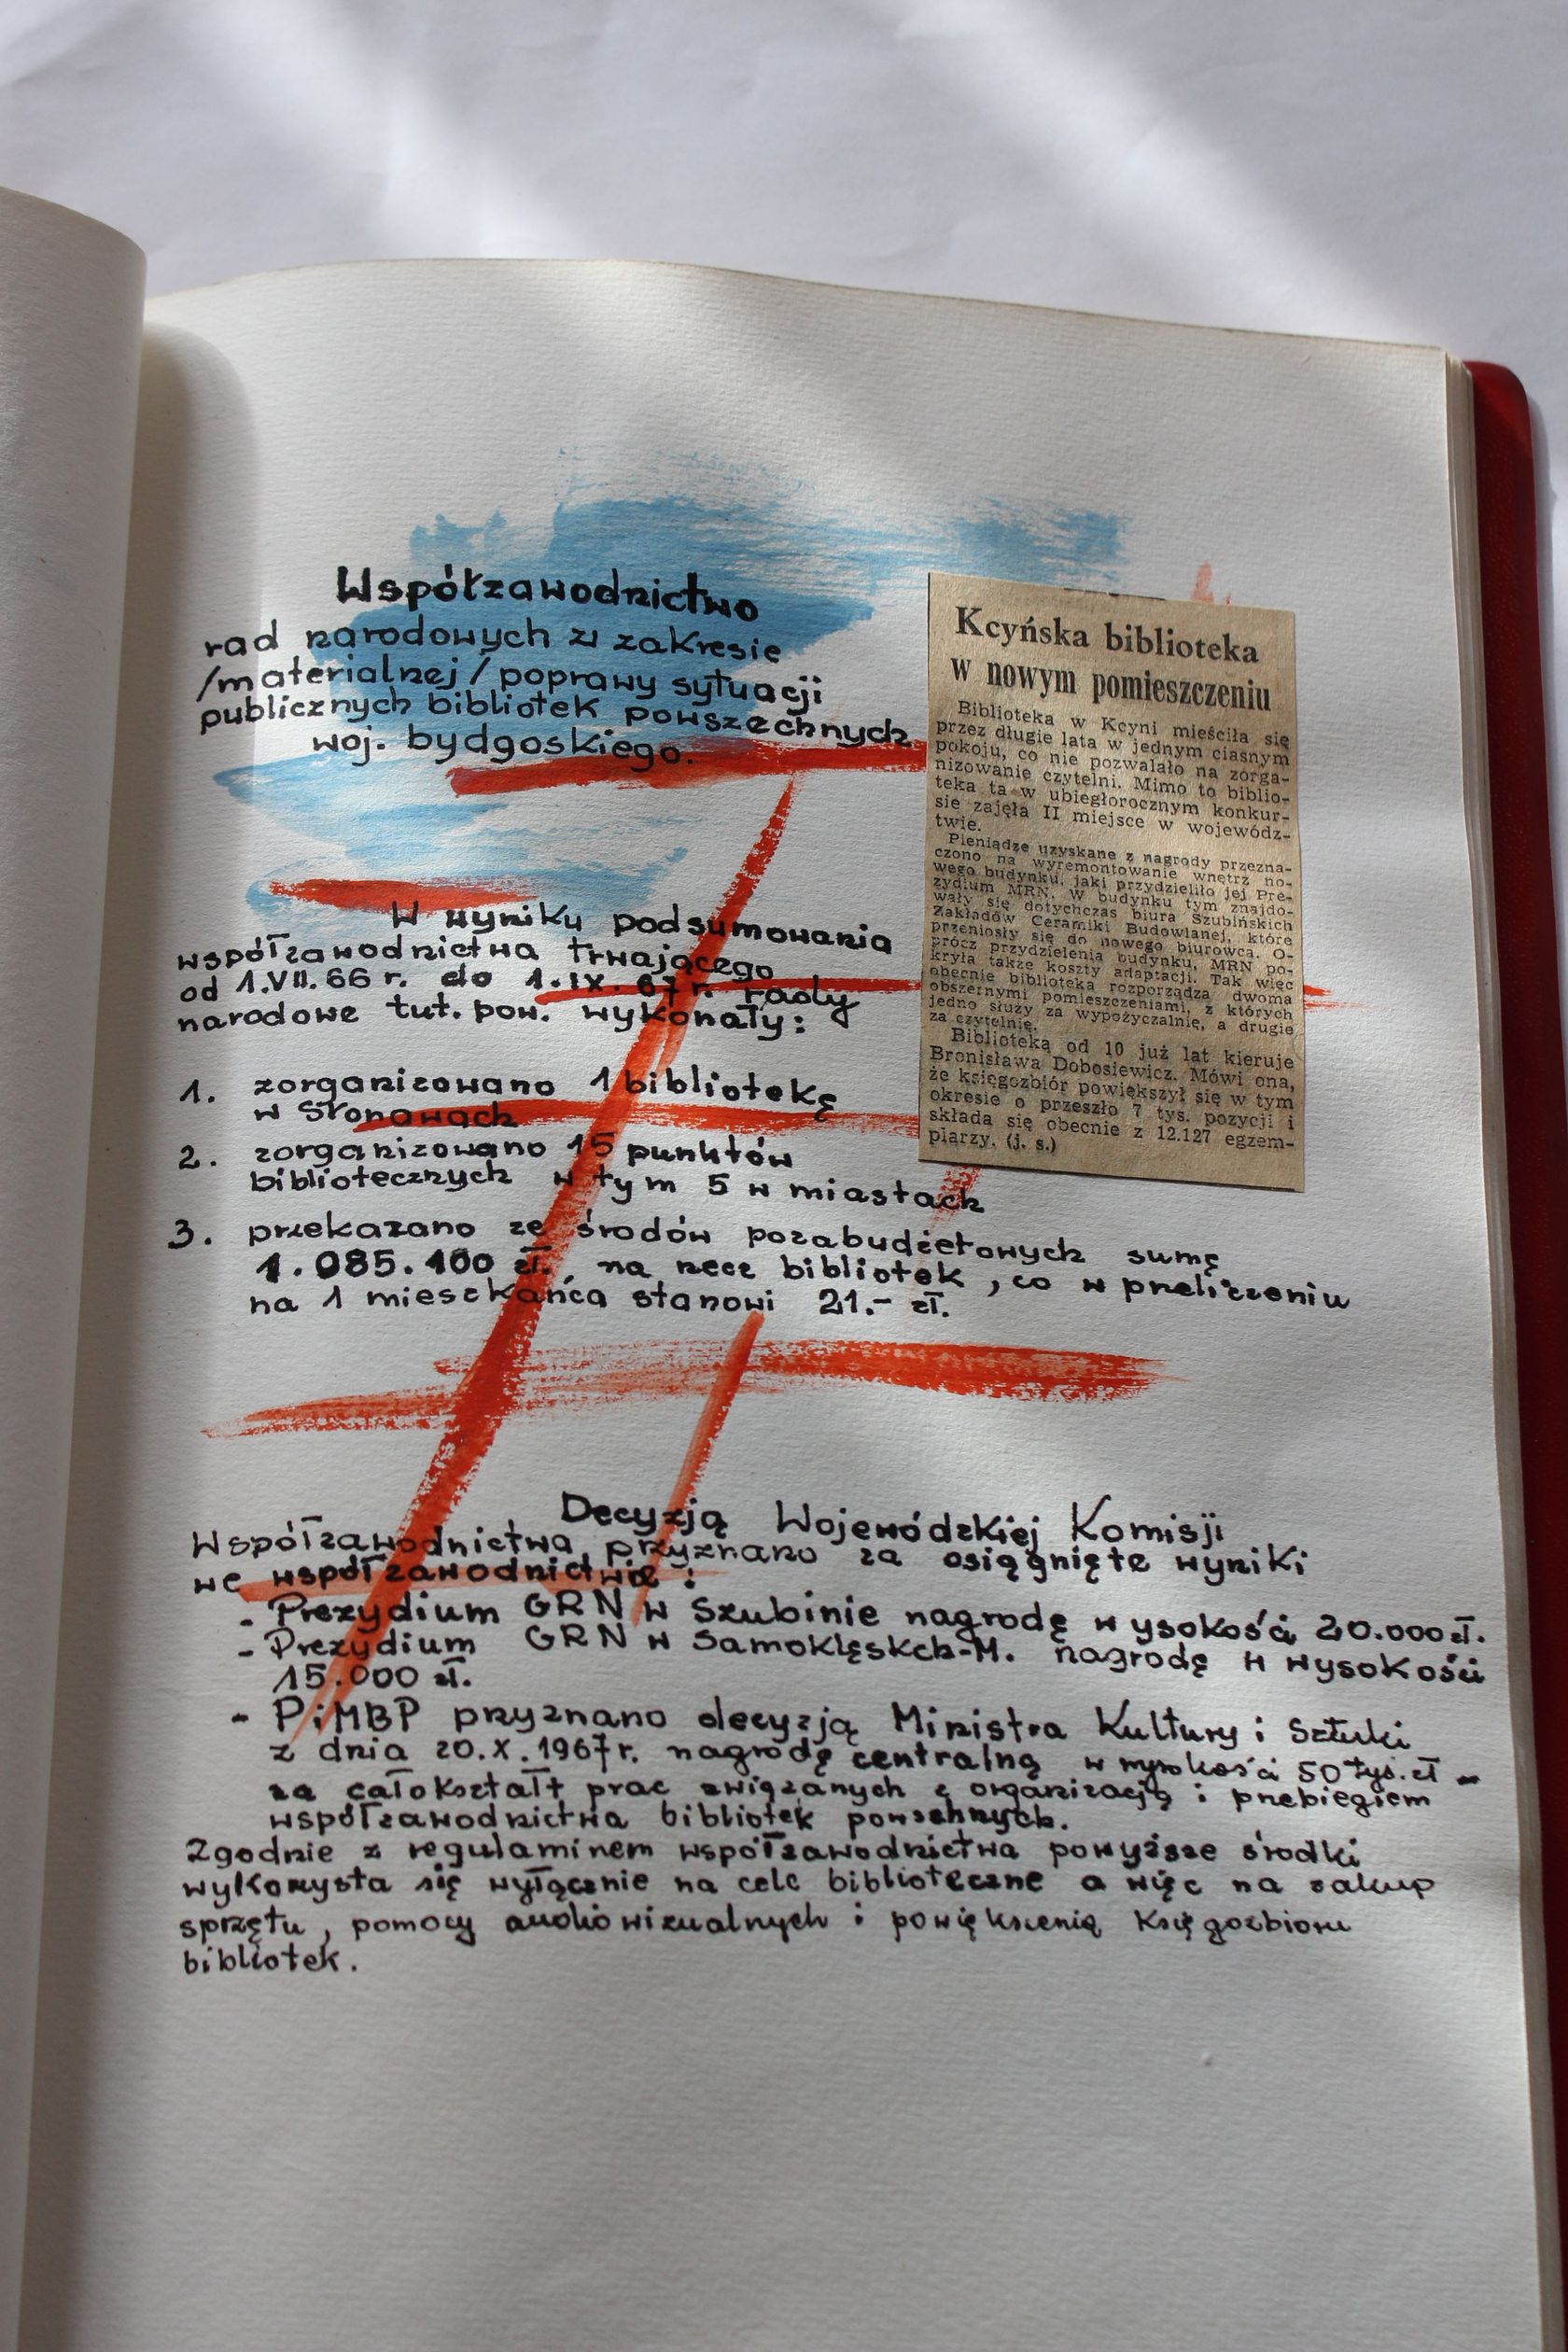 Współzawodnictwo
rad narodowych w zakresie
/materialnej/ poprawy sytuacji
publicznych bibliotek powszechnych
woj. bydgoskiego.
W wyniku podsumowania
współzawodnictwa trwającego
od 1.VII.66 r. do 1.IX.67 r. rady
narodowe tut. pow. wykonały:
1. zorganizowano 1 bibliotekę
w Słonawach
2. zorganizowano 15 punktów
bibliotecznych w tym 5 w miastach
3. przekazano ze środów pozabudżetowych sumę
1.085.100 zł. na rzecz bibliotek, co w przeliczeniu
na 1 mieszkańca stanowi 21.- zł.
Kcyńska biblioteka
w nowym pomieszczeniu
Biblioteka w Kcyni mieściła się
przez długie lata w jednym ciasnym
pokoju, co nie pozwalało na zorga-
nizowanie czytelni. Mimo to biblio-
teka ta w ubiegłorocznym konkur-
sie zajęła II miejsce w wojewódz-
twie.
Pieniądze uzyskane z nagrody przezna-
czono na wyremontowanie wnętrz no-
wego budynku, jaki przydzieliło jej Pre-
zydium MRN. W budynku tym znajdo-
wały się dotychczas biura Szubińskich
Zakładów Ceramiki Budowlanej, które
przeniosły się do nowego biurowca. O-
prócz przydzielenia budynku, MRN po-
kryła także koszty adaptacji. Tak więc
obecnie biblioteka rozporządza dwoma
obszernymi pomieszczeniami, z których
jedno służy za wypożyczalnię, a drugie
za czytelnię.
Biblioteką od 10 już lat kieruje
Bronisława Dobosiewicz. Mówi ona,
że księgozbiór powiększył się w tym
okresie o przeszło 7 tys. pozycji i
składa się obecnie z 12.127 egzem-
plarzy. (j. s.)
Decyzją Wojewódzkiej Komisji
Współzawodnictwa przyznano za osiągnięte wyniki
we współzawodnictwie:
- Prezydium GRN w Szubinie nagrodę wysokości 20.000 zł.
- Prezydium GRN w Samoklęskch-M. nagrodę w wysokości
15.000 zł.
- PiMBP przyznano decyzją Ministra Kultury i Sztuki
z dnia 20.X.1967 r. nagrodę centralną w wysokości 50 tys. zł -
za całokształt prac związanych z organizacją i przebiegiem
współzawodnictwa bibliotek
Zgodnie z regulaminem współzawodnictwa powyższe środki
wykorzysta się wyłącznie na cele biblioteczne a więc na zakup
sprzętu, pomocy audiowizualnych i powiększenią księgozbioru
bibliotek.